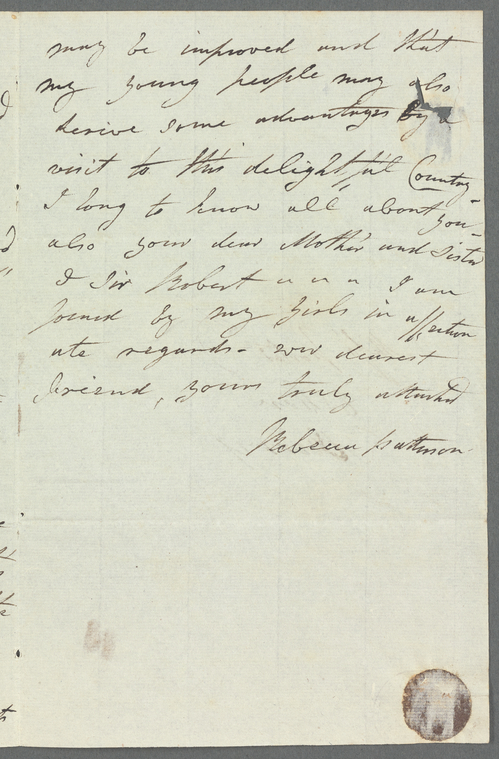 may be improved and that
my young people may also
derive some advantages by a
visit to this delightful Country
I long to know all about you
also your dear Mother and Sister
& Sir Robert " " " I am
joined by my Girls in affection
ate regards - dearest
friend, yours truly attached
Rebecca Patterson